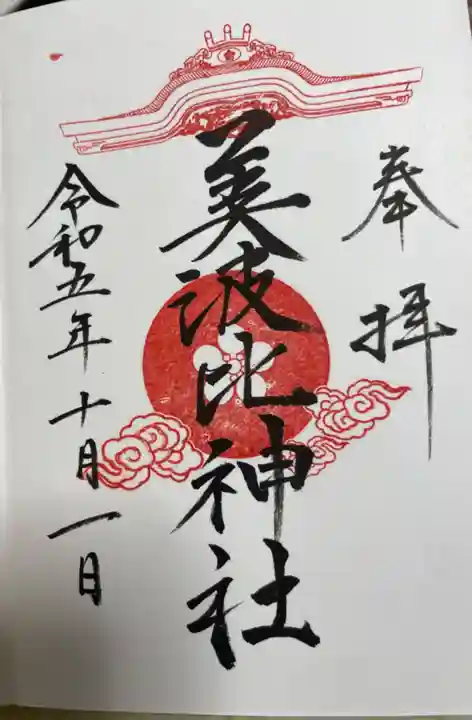 奉拝
美波比神社
令和五年十月一日